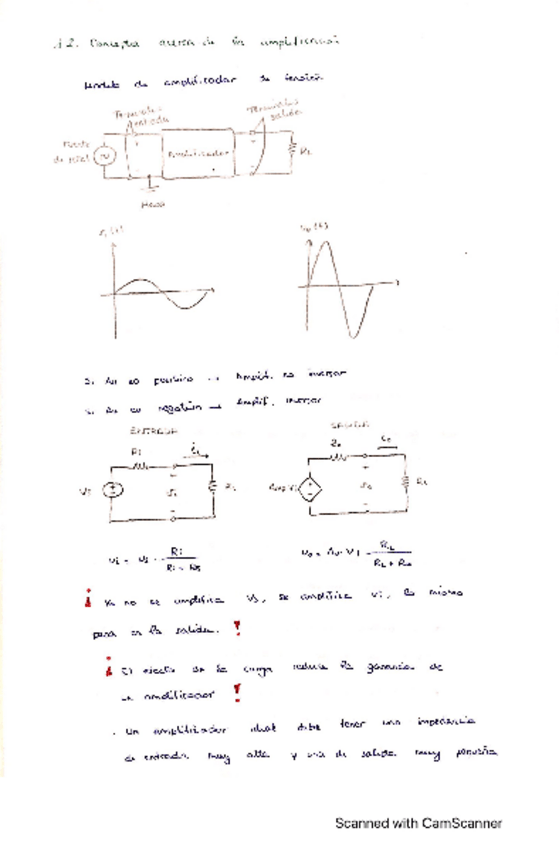 1.2. Conceptos acerca de la amplificación
Modelo de amplificador de tensión
Terminales entrada
Terminales salida
Fuente
de señal
Amplificador
RL
Masa
vi (t)
vo (t)
Si Av es positivo → Amplif. no inversor
Si Av es negativo → Amplif. inversor
ENTRADA
SALIDA
Ri
ii
Ro
io
+
+
vi
vo
RL
-
-
vi = vs · Ri / Ri + Rs
vo = Av · vi · RL / RL + Ro
¡ Ya no se amplifica vs, se amplifica vi, lo mismo
pasa en la salida. !
¡ El efecto de la carga reduce la ganancia de
un amplificador !
. Un amplificador ideal debe tener una impedancia
de entrada muy alta y una de salida muy pequeña
Scanned with CamScanner